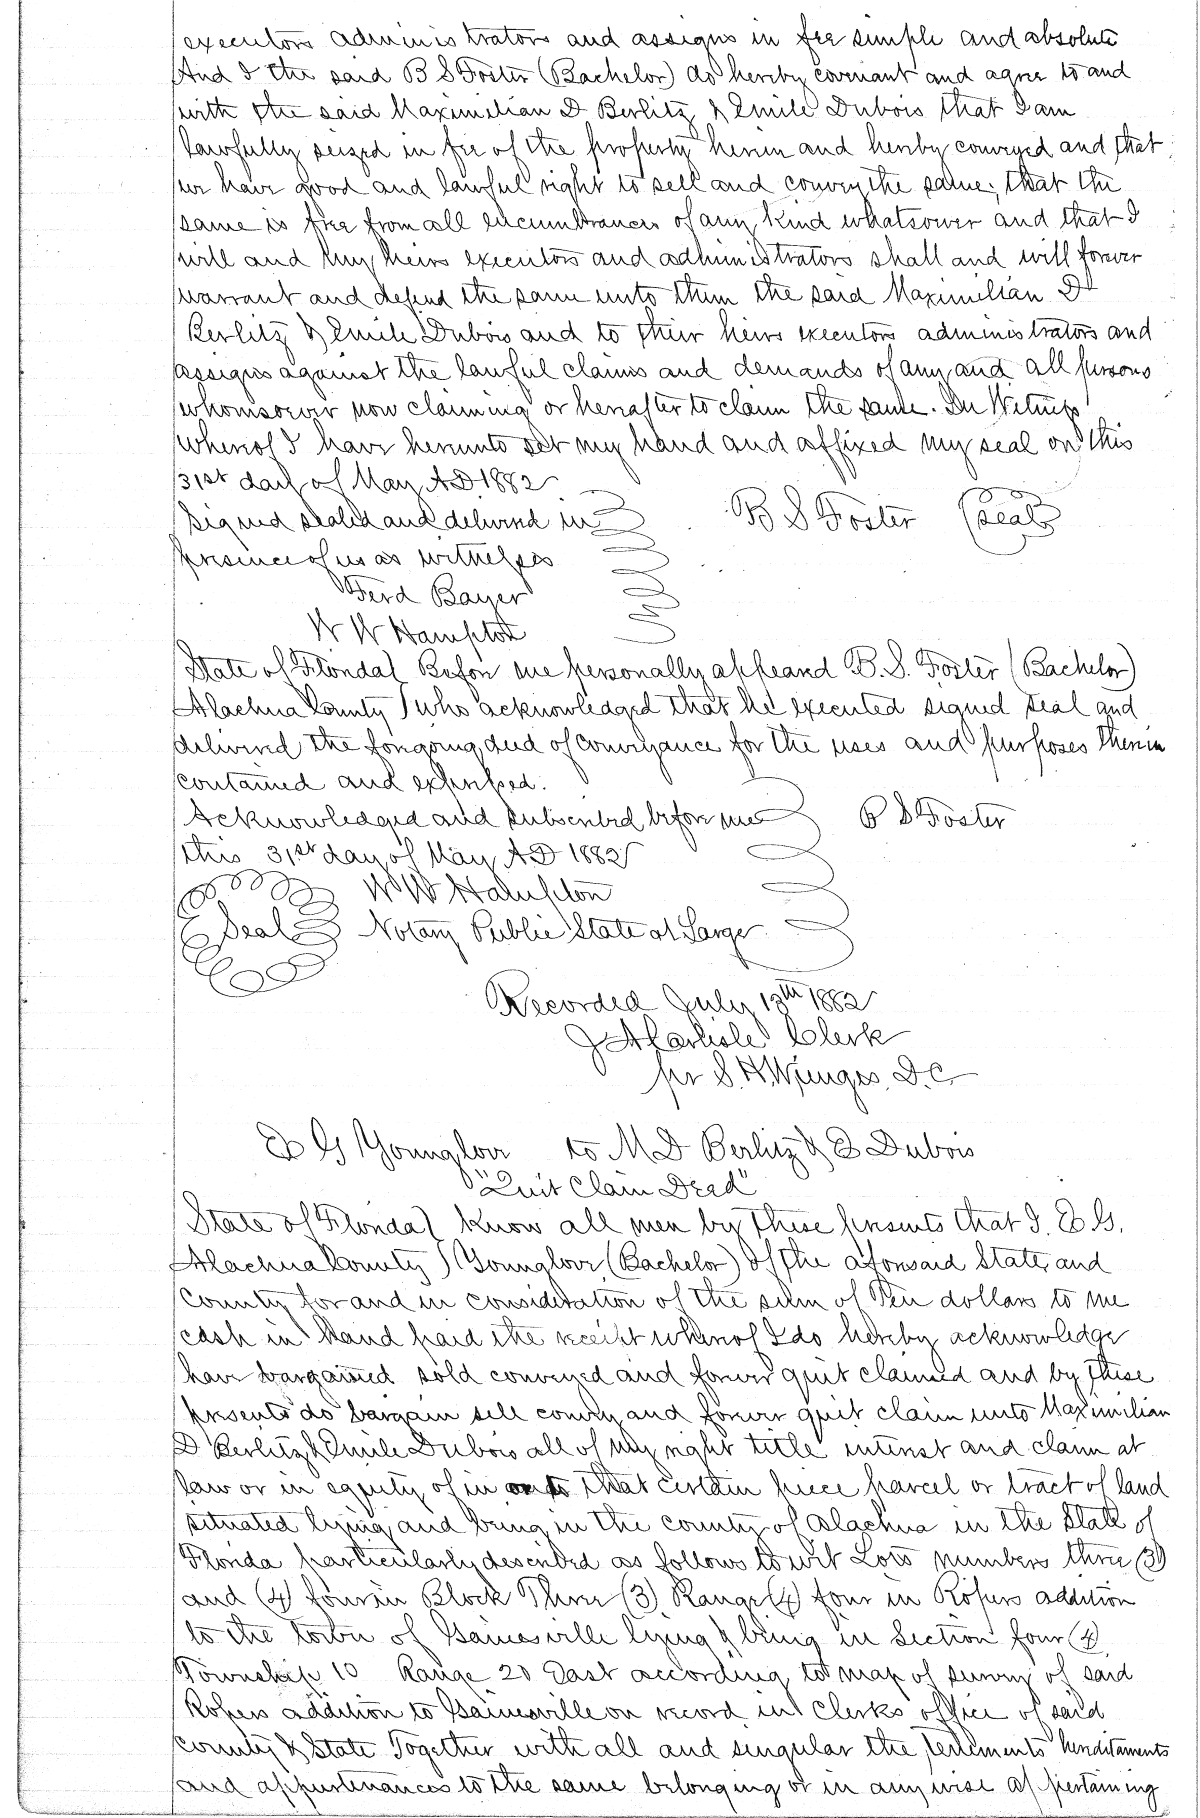 executors administrators and assigns in fee simple and absolute
And I the said B S Foster (Bachelor) do hereby covenant and agree to and
with the said Maximilian D Berlitz & Emile Dubois that I am
lawfully seized in fee of the property herein and hereby conveyed and that
we have good and lawful right to sell and convey the same; that the
same is free from all encumbrances of any kind whatsoever and that I
will and my heirs executors and administrators shall and will forever
warrant and defend the same unto them the said Maximilian D
Berlitz & Emile Dubois and to their heirs executors administrators and
assigns against the lawful claims and demands of any and all persons
whomsoever now claiming or hereafter to claim the same. In Witness
whereof I have hereunto set my hand and affixed my seal on this
31st day of May AD 1882
Signed sealed and delivered in B S Foster (Seal)
presence of us as witnesses
Ferd Bayer
W W Hampton
State of Florida } Before me personally appeared B. S. Foster (Bachelor)
Alachua County } who acknowledged that he executed signed seal and
delivered the foregoing deed of conveyance for the uses and purposes therein
contained and expressed.
Acknowledged and subscribed before me B S Foster
this 31st day of May AD 1882
W W Hampton
Seal Notary Public State at Large
Recorded July 13th 1882
J A Carlisle Clerk
pr S. H. D.C
E G Younglove to M D Berlitz & E Dubois
"Quit Claim Deed"
State of Florida } Know all men by these presents that I. E G.
Alachua County } Younglove (Bachelor) of the aforesaid State and
County for and in consideration of the sum of Ten dollars to me
cash in hand paid the receipt whereof I do hereby acknowledge
have bargained sold conveyed and forever quit claimed and by these
presents do bargain sell convey and forever quit claim unto Maximilian
D Berlitz & Emile Dubois all of my right title interest and claim at
law or in equity of in that certain piece parcel or tract of land
situated lying and being in the county of Alachua in the State of
Florida particularly described as follows to wit Lots numbers three (3)
and (4) four in Block Three (3) Range (4) four in Ropers addition
to the town of Gainesville lying & being in Section four (4)
Township 10 Range 20 East according to map of survey of said
Ropers addition to Gainesville on record in Clerks office of said
County & State Together with all and singular the tenements hereditaments
and appurtenances to the same belonging or in any wise appertaining